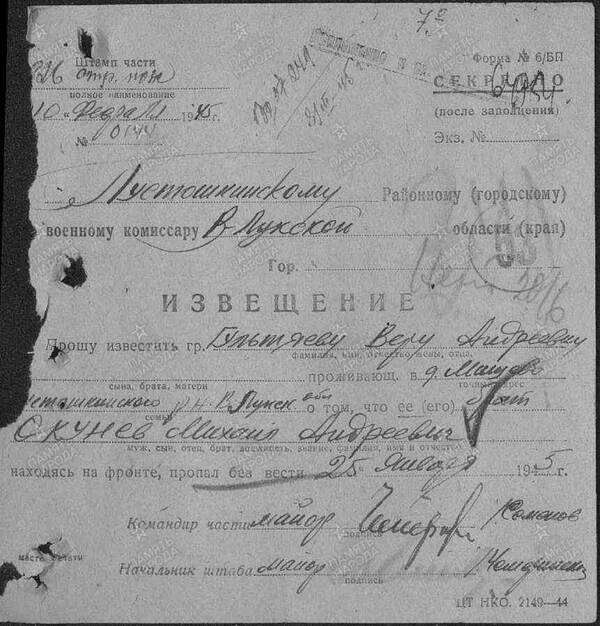 7º
Штамп части
Форма № 6/БП
стр. полк
СЕКРЕТНО
полное наименование
10 "Февраля 1945г.
(после заполнения)
№ 0144
Экз. №
Пустошкинскому Районному (городскому)
военному комиссару В-Лукской области (края)
Гор.
53
ИЗВЕЩЕНИЕ
Прошу известить гр. Веру Андреевну
фамилия, имя, отчество жены, отца,
проживающ. в д.
сына, брата, матери точный адрес
р-н В.Лукск обл о том, что ее (его) брат
семьи
Скунев Михаил Андреевич
муж, сын, отец, брат, должность, звание, фамилия, имя и отчество
находясь на фронте, пропал без вести 25 Января 1945г.
Командир части майор
подпись
место печати
Начальник штаба майор
подпись
ЦТ НКО. 2149—44